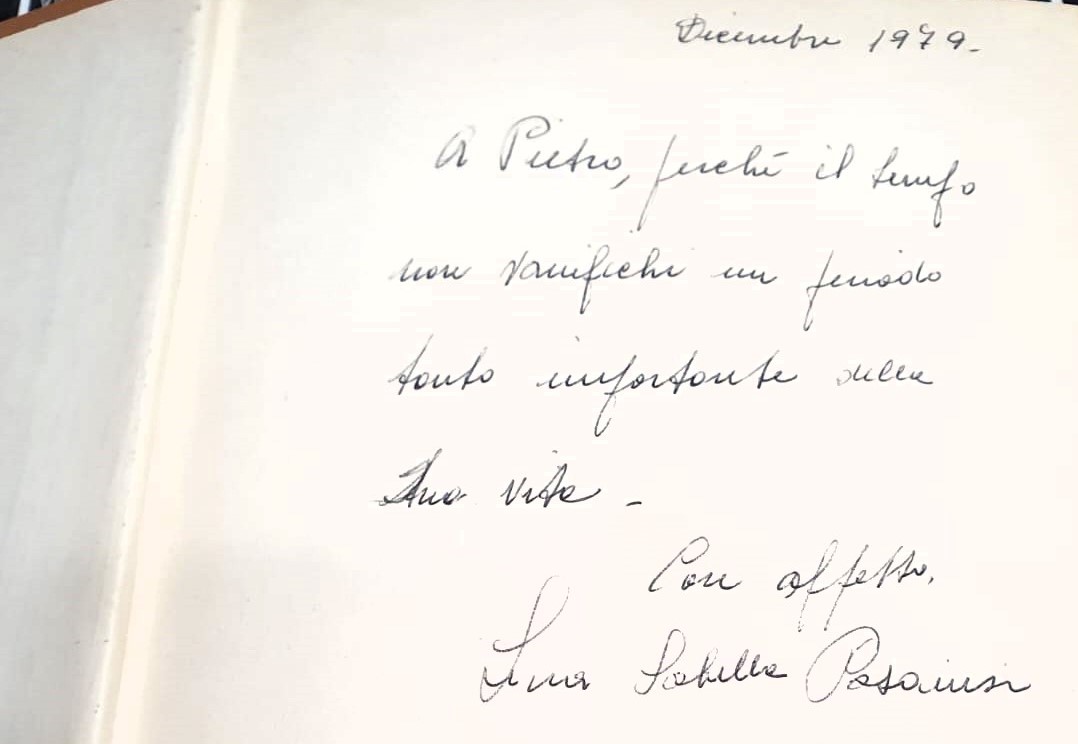 Dicembre 1979.
A Pietro, perché il tempo
non vanifichi un periodo
tanto importante della
Sua vita -
Con affetto.
Lina